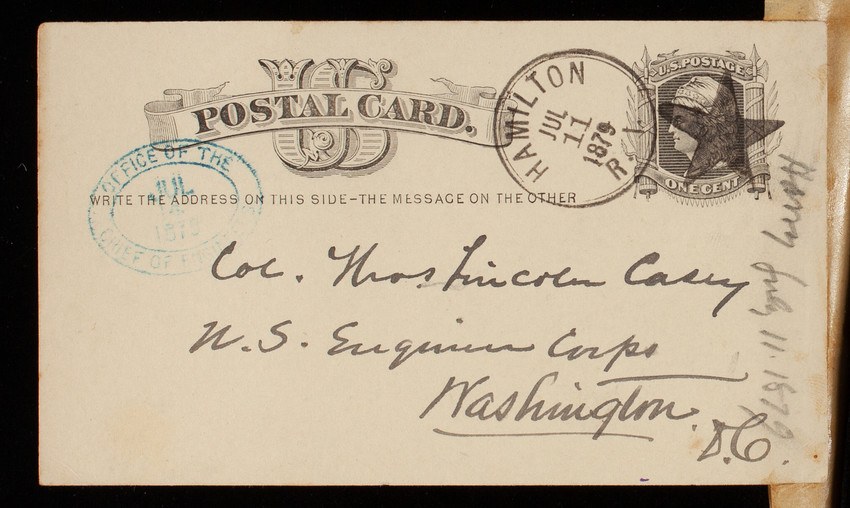 US
POSTAL CARD.
U.S. POSTAGE
ONE CENT
HAMILTON
JUL
11
1879
R.I.
OFFICE OF THE
JUL
1879
CHIEF OF
WRITE THE ADDRESS ON THIS SIDE-THE MESSAGE ON THE OTHER
Col. Thos Lincoln Casey
U.S. Engineer Corps
Washington.
D.C.
July 11. 1879